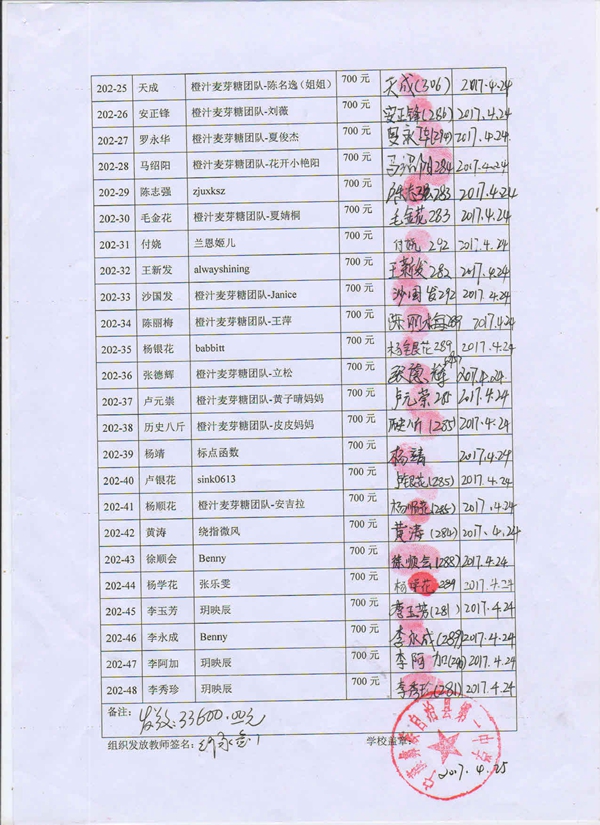 202-25 天成 橙汁麦芽糖团队-陈名逸（姐姐） 700 元 天成(306) 2017.4.24
202-26 安正锋 橙汁麦芽糖团队-刘薇 700 元 安正锋(286) 2017.4.24
202-27 罗永华 橙汁麦芽糖团队-夏俊杰 700 元 2017.4.24
202-28 马绍阳 橙汁麦芽糖团队-花开小艳阳 700 元 马绍阳284 2017.4.24
202-29 陈志强 zjuxksz 700 元 陈志强283 2017.4.24
202-30 毛金花 橙汁麦芽糖团队-夏婧桐 700 元 毛金花283 2017.4.24
202-31 付娆 兰恩姬儿 700 元 付娆 292 2017.4.24
202-32 王新发 alwayshining 700 元 王新发282 2017.4.24
202-33 沙国发 橙汁麦芽糖团队-Janice 700 元 沙国发292 2017.4.24
202-34 陈丽梅 橙汁麦芽糖团队-王萍 700 元 陈丽梅289 2017.4.24
202-35 杨银花 babbitt 700 元 杨银花289 2017.4.24
202-36 张德辉 橙汁麦芽糖团队-立松 700 元 张德辉 2017.4.24
202-37 卢元崇 橙汁麦芽糖团队-黄子晴妈妈 700 元 卢元崇285 2017.4.24
202-38 历史八斤 橙汁麦芽糖团队-皮皮妈妈 700 元 (285) 2017.4.24
202-39 杨靖 标点函数 700 元 杨靖 2017.4.29
202-40 卢银花 sink0613 700 元 卢银花(285) 2017.4.24
202-41 杨顺花 橙汁麦芽糖团队-安吉拉 700 元 杨顺花(285) 2017.4.24
202-42 黄涛 绕指微风 700 元 黄涛(284) 2017.4.24
202-43 徐顺会 Benny 700 元 徐顺会(288) 2017.4.24
202-44 杨学花 张乐雯 700 元 杨学花289 2017.4.24
202-45 李玉芳 玥映辰 700 元 李玉芳(281) 2017.4.24
202-46 李永成 Benny 700 元 李永成(289) 2017.4.24
202-47 李阿加 玥映辰 700 元 李阿加 2017.4.24
202-48 李秀珍 玥映辰 700 元 李秀珍(281) 2017.4.24
备注: 发放:33600.00元
组织发放教师签名: 学校盖章:
2017.4.25